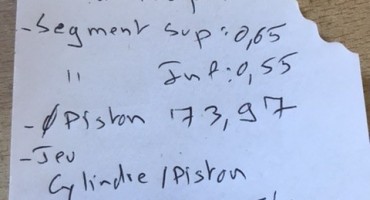 -Segment Sup:0,65
" Inf:0,55
-ϕPiston 73,97
-Jeu
Cylindre/Piston